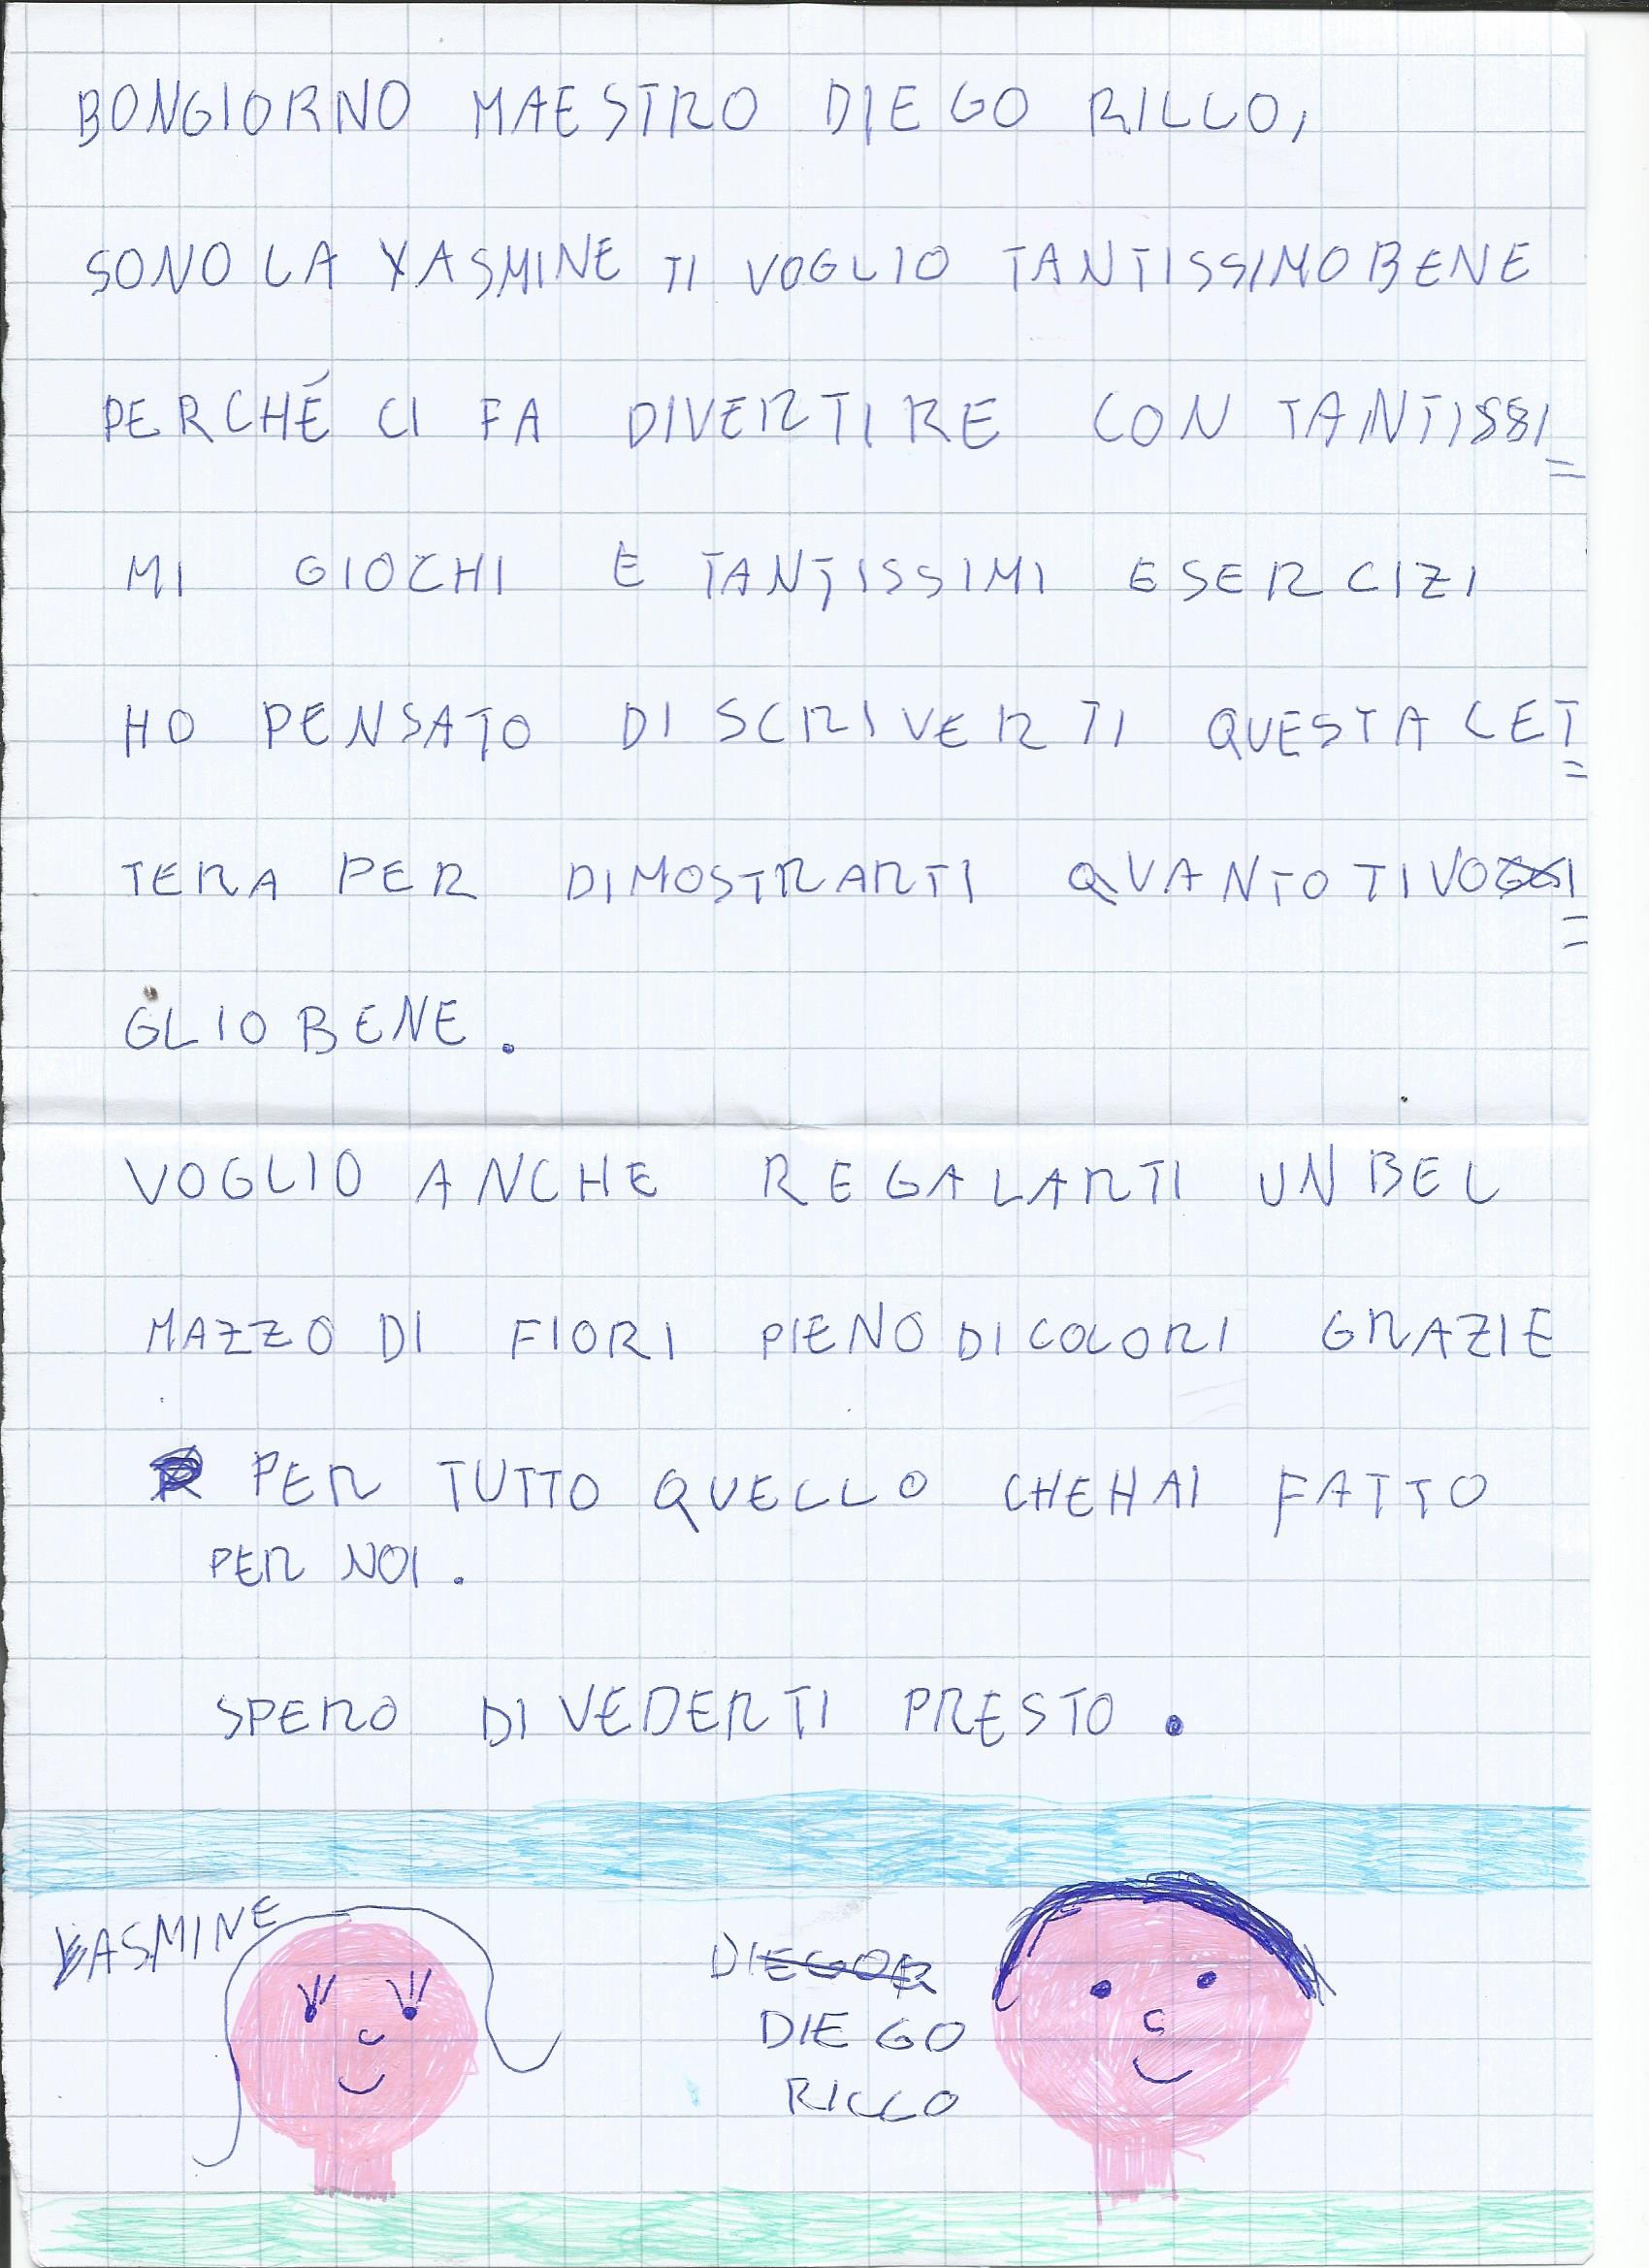 BONGIORNO MAESTRO DIEGO RILLO,
SONO LA YASMINE TI VOGLIO TANTISSIMO BENE
PERCHÉ CI FA DIVERTIRE CON TANTISSI=
MI GIOCHI E TANTISSIMI ESERCIZI
HO PENSATO DI SCRIVERTI QUESTA LET=
TERA PER DIMOSTRARTI QUANTO TI VO=
GLIO BENE.
VOGLIO ANCHE REGALARTI UN BEL
MAZZO DI FIORI PIENO DI COLORI GRAZIE
PER TUTTO QUELLO CHE HAI FATTO
PER NOI.
SPERO DI VEDERTI PRESTO.
YASMINE
DIEGO R
DIEGO
RILLO